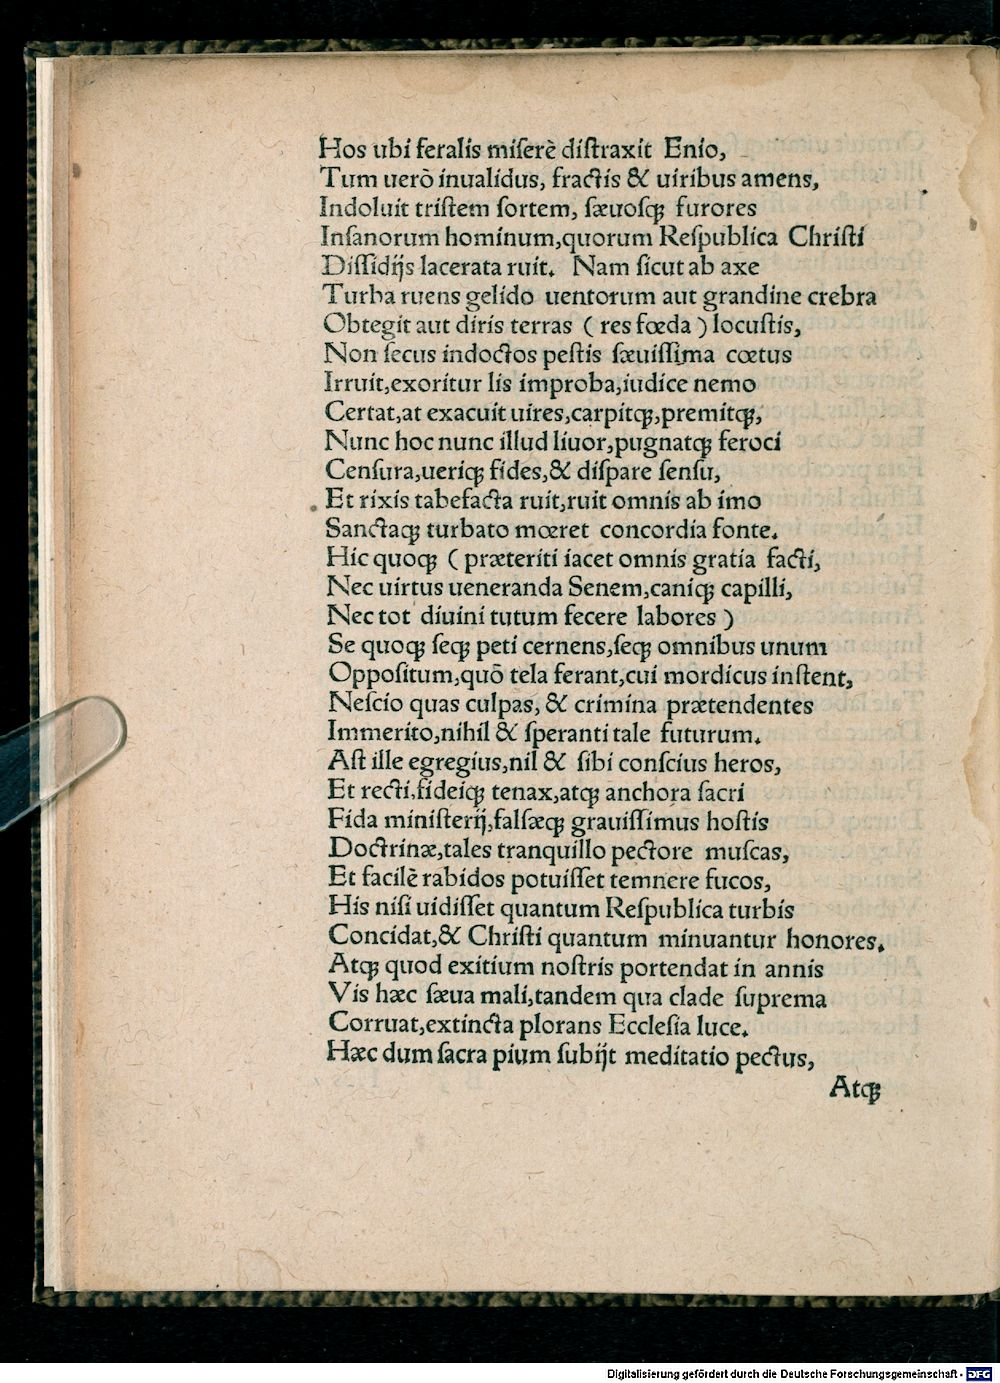 Hos ubi feralis miſerè diſtraxit Enio,
Tum uerò inualidus, fractis & uiribus amens,
Indoluit triſtem ſortem, ſæuoſq; furores
Inſanorum hominum,quorum Reſpublica Chriſti
Diſſidijs lacerata ruit. Nam ſicut ab axe
Turba ruens gelido uentorum aut grandine crebra
Obtegit aut diris terras ( res fœda ) locuſtis,
Non ſecus indoctos peſtis ſæuiſſima cœtus
Irruit,exoritur lis improba,iudice nemo
Certat,at exacuit uires,carpitq;,premitq;,
Nunc hoc nunc illud liuor,pugnatq; feroci
Cenſura,ueriq; fides,& diſpare ſenſu,
Et rixis tabefacta ruit,ruit omnis ab imo
Sanctaq; turbato mœret concordia fonte.
Hic quoq; ( præteriti iacet omnis gratia facti,
Nec uirtus ueneranda Senem,caniq; capilli,
Nec tot diuini tutum fecere labores )
Se quoq; ſeq; peti cernens,ſeq; omnibus unum
Oppoſitum,quò tela ferant,cui mordicus inſtent,
Neſcio quas culpas, & crimina prætendentes
Immerito,nihil & ſperanti tale futurum.
Aſt ille egregius,nil & ſibi conſcius heros,
Et recti,fideiq; tenax,atq; anchora ſacri
Fida miniſterij,falſæq; grauiſſimus hoſtis
Doctrinæ,tales tranquillo pectore muſcas,
Et facilè rabidos potuiſſet temnere fucos,
His niſi uidiſſet quantum Reſpublica turbis
Concidat,& Chriſti quantum minuantur honores.
Atq; quod exitium noſtris portendat in annis
Vis hæc ſæua mali,tandem qua clade ſuprema
Corruat,extincta plorans Eccleſia luce.
Hæc dum ſacra pium ſubijt meditatio pectus,
Atq;
Digitalisierung gefördert durch die Deutsche Forschungsgemeinschaft - DFG